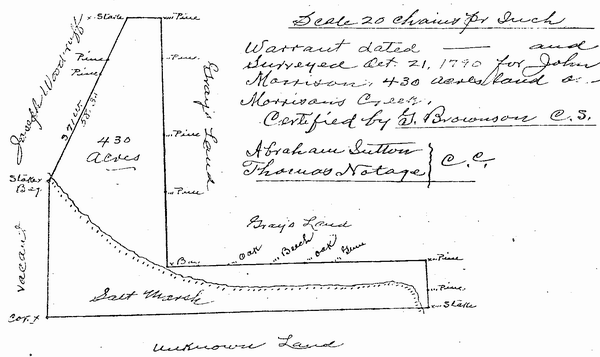 Scale 20 Chains pr Inch
Warrant dated — and
Surveyed Oct. 21, 1790 for John
Morrison. 430 acres land o
Morrison's Creek.
Certified by Brownson C.S.
Abraham Sutton
Thomas Notage } C.C.
x Stake
Pine
Pine
Pine
Pine
Pine
Pine
Joseph Woodruff
Gray's Land
430
Acres
Stake
Beg
Vacant
Cor. x
Gray's Land
x Bay
oak
Beech
oak
Gum
x Pine
Pine
x Stake
Salt Marsh
Unknown Land